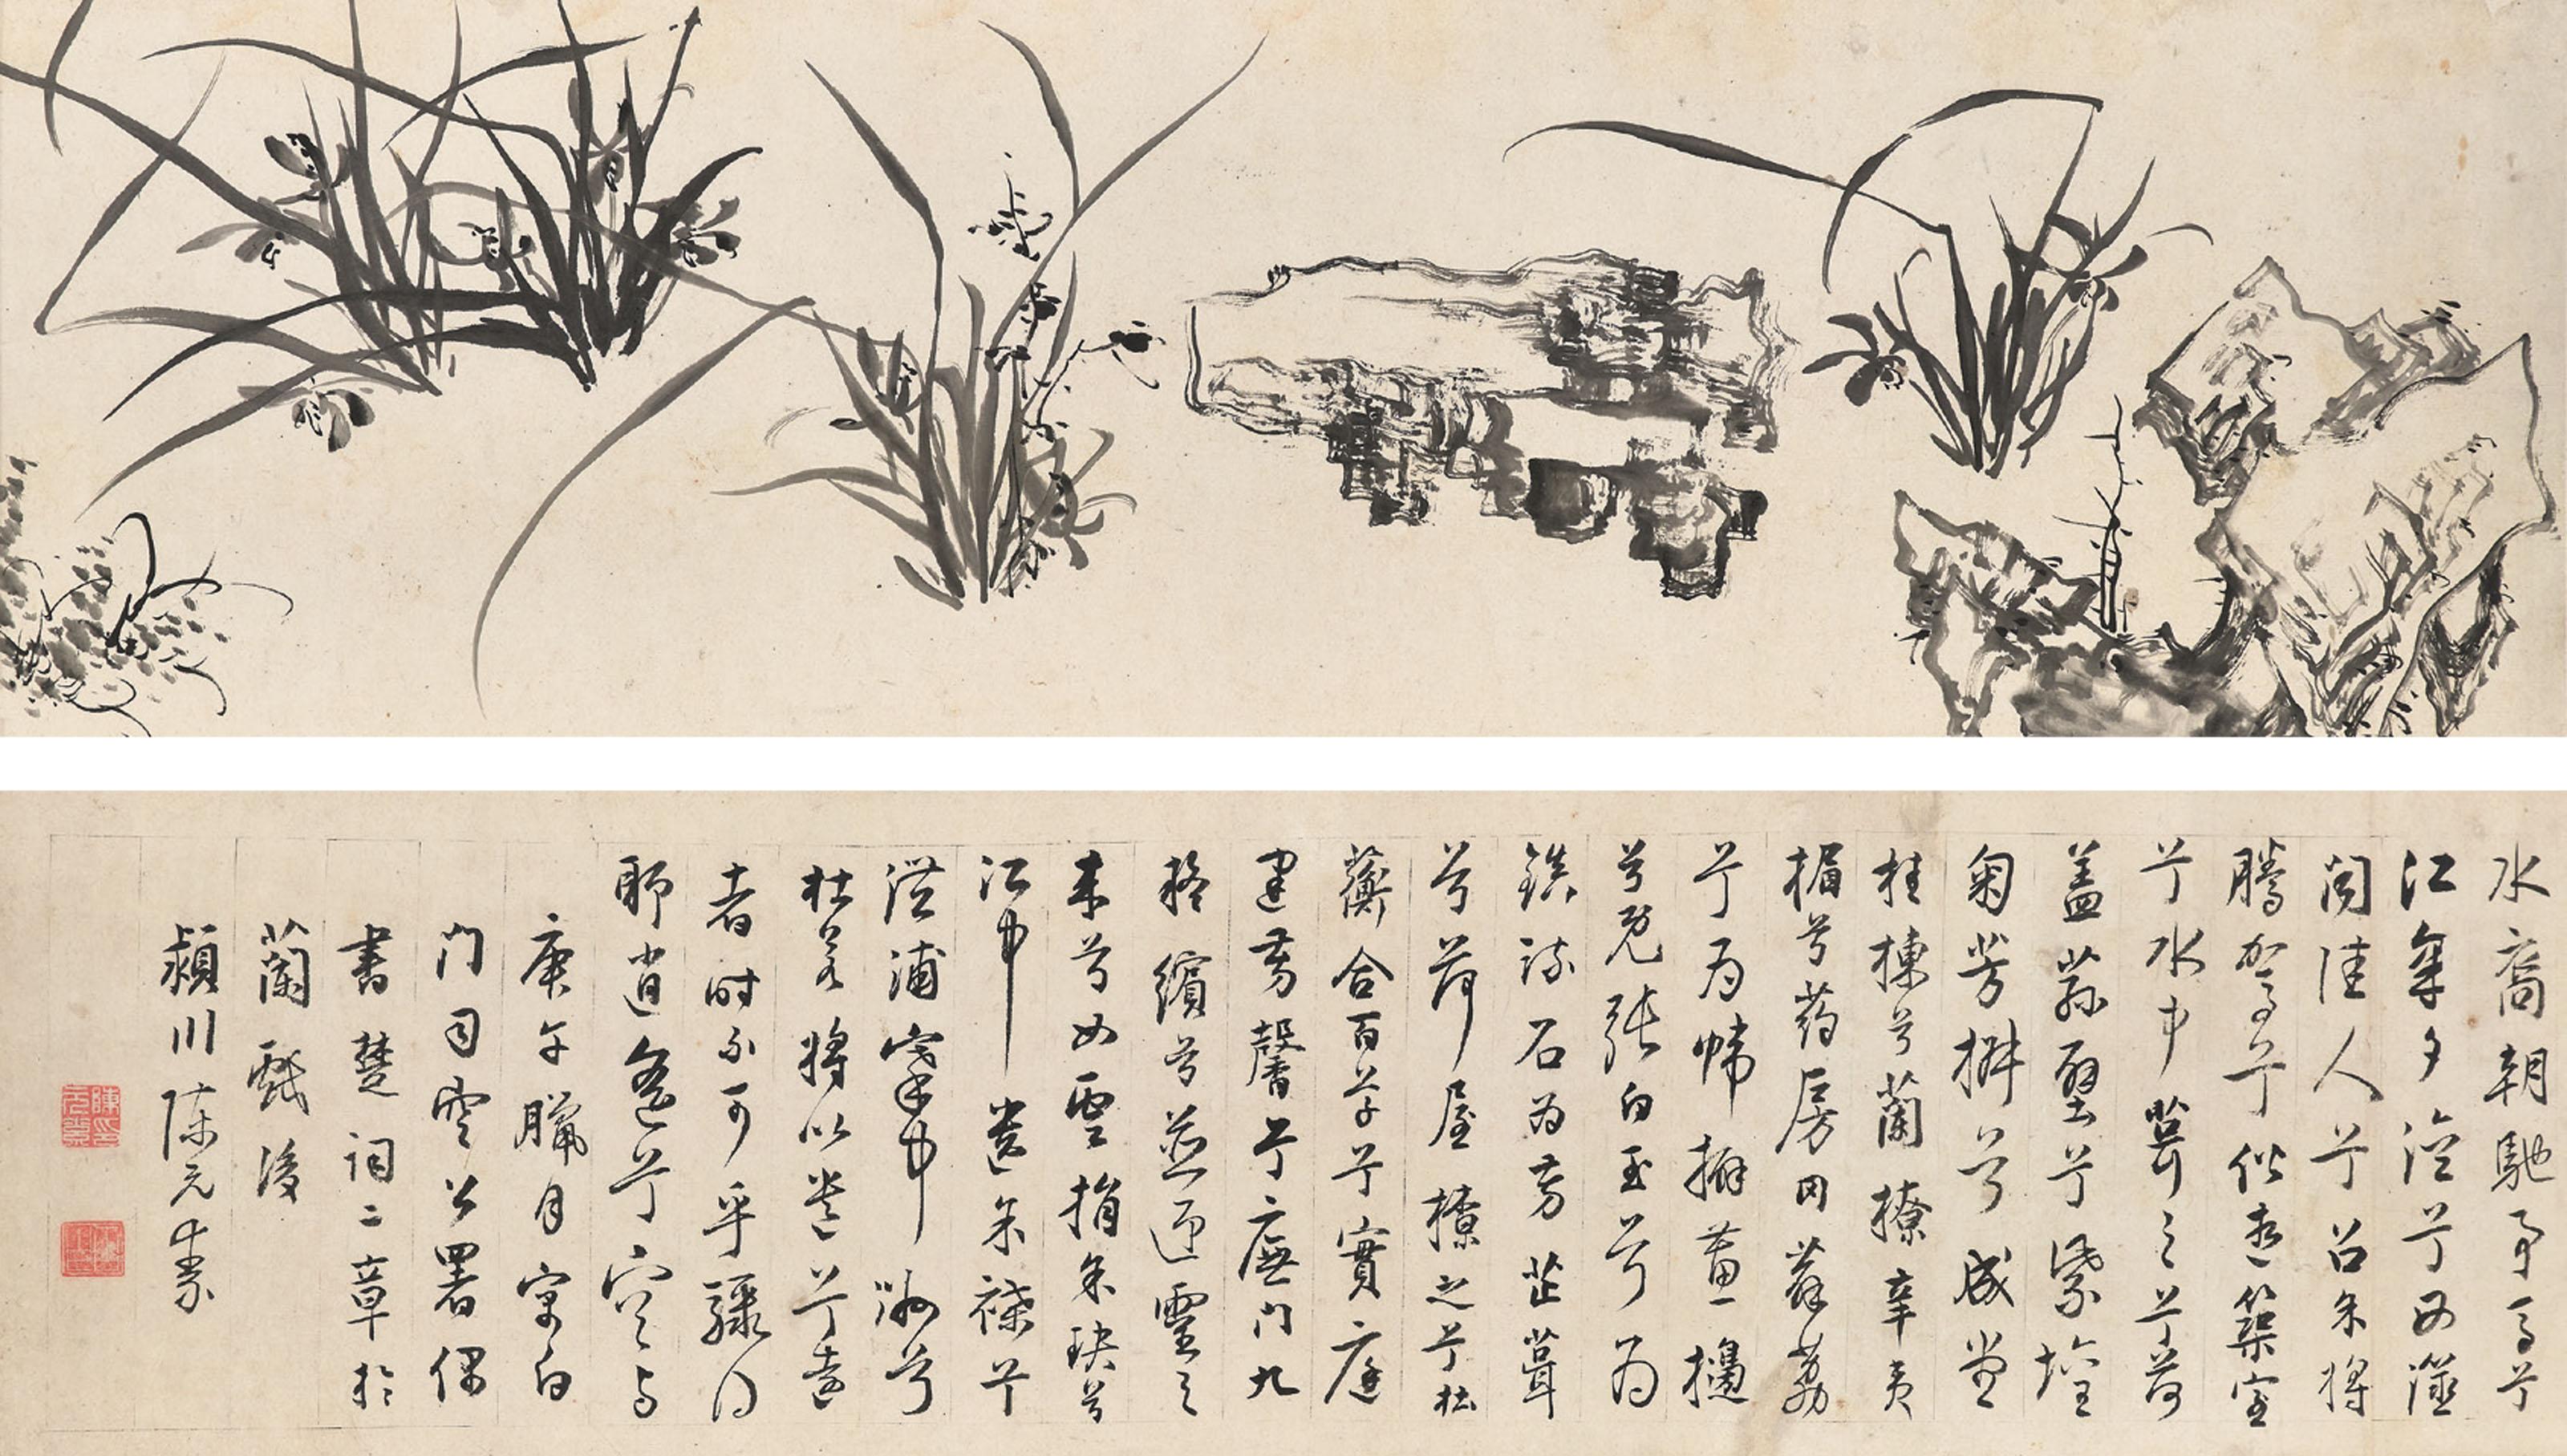 水裔朝馳予馬兮
江皋夕濟兮西澨
聞佳人兮召余將
騰駕兮偕逝築室
兮水中葺之兮荷
蓋蓀壁兮紫壇
匊芳椒兮成堂
桂棟兮蘭橑辛夷
楣兮葯房罔薜荔
兮為帷擗蕙櫋
兮既張白玉兮為
鎮疏石為芳芷葺
兮荷屋橑之兮杜
蘅合百草兮實庭
建芳馨兮廡門九
繽兮並迎靈之
來兮如雲捐余玦兮
江中遺余褋兮
澧浦搴中洲兮
杜若將以遺兮遠
者時不可乎驟得
聊逍遙兮容與
庚午臘月寓白
門司空公署偶
書楚詞二章於
蘭戲後
潁川陳元素
陳印元素